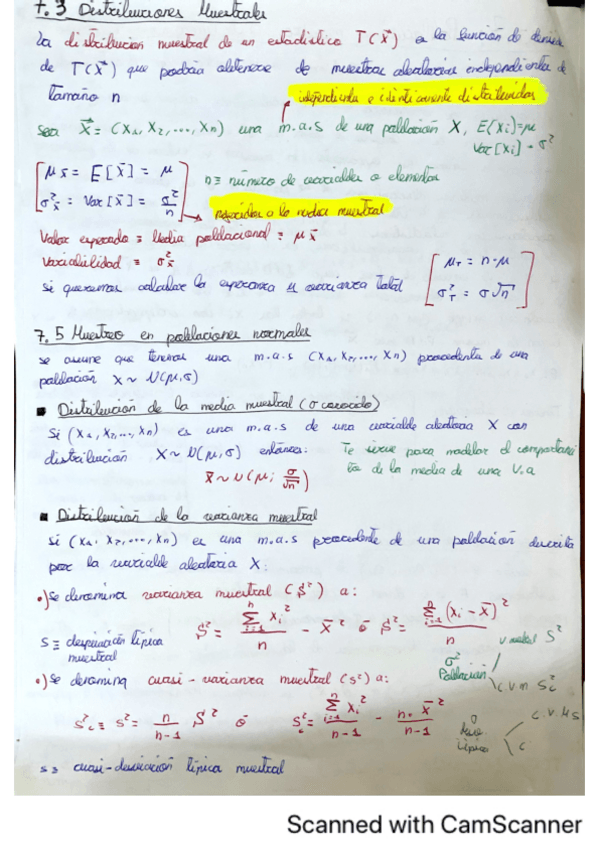 7.3 Distribuciones Muestrales
La distribución muestral de un estadístico T(X⃗) es la función de
de T(X⃗) que podría obtenerse de muestras aleatorias independientes de
tamaño n
independientes e idénticamente distribuidas
Sea X⃗ = (X₁, X₂, ..., Xn) una m.a.s de una población X, E[Xi]=μ
Var[Xi] = σ²
μx̄ = E[X̄] = μ
n ≡ número de variables o elementos
σ²x̄ = Var[X̄] = σ²/n
a la media muestral
Valor esperado ≡ Media poblacional = μx̄
Variabilidad ≡ σ²x̄
Si queremos calcular la esperanza y varianza total
μT = n·μ
σ²T = σ√n
7.5 Muestreo en poblaciones normales
se asume que tenemos una m.a.s (X₁, X₂, ..., Xn) procedente de una
población X ~ N(μ,σ)
▪ Distribución de la media muestral (σ conocido)
Si (X₁, X₂, ..., Xn) es una m.a.s de una variable aleatoria X con
distribución X ~ N(μ,σ) entonces:
Te sirve para modelar el
de la media de una V.a
X̄ ~ N(μ; σ/√n)
▪ Distribución de la varianza muestral
Si (X₁, X₂, ..., Xn) es una m.a.s procedente de una población descrita
por la variable aleatoria X:
•) Se denomina varianza muestral (S²) a:
S² = Σⁿᵢ₌₁ Xi² / n - X̄² ó S² = Σⁿᵢ₌₁ (Xi - X̄)² / n
S ≡ desviación típica
muestral
σ²
Población
S²
c.v.m Sc²
•) Se denomina cuasi-varianza muestral (s²) a:
Sc² ≡ s² = n/n-1 S² ó Sc² = Σⁿᵢ₌₁ Xi² / n-1 - n·X̄² / n-1
típica
s ≡ cuasi-desviación típica muestral
Scanned with CamScanner